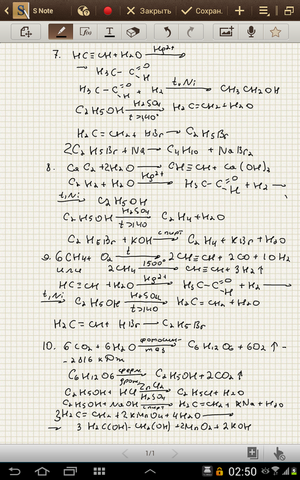 S Note
Закрыть
Сохран.
7. HC≡CH + H2O Hg2+ →
→ H3C-C=O H
H3C-C=O H + H2 t,Ni → CH3CH2OH
C2H5OH H2SO4 t>140 → H2C=CH2 + H2O
H2C=CH2 + HBr → C2H5Br
2C2H5Br + Na → C4H10 + NaBr2
8. CaC2 + 2H2O → CH≡CH + Ca(OH)2
C2H2 + H2O Hg2+ → H3C-C=O H + H2 →
t,Ni → C2H5OH
C2H5OH H2SO4 t>140 → C2H4 + H2O
C2H5Br + KOH спирт → C2H4 + KBr + H2O
9. 6CH4 + O2 t → 2CH≡CH + 2CO + 10H2
или 2CH4 1500° → CH≡CH + 3H2↑
HC≡CH + H2O Hg2+ → H3C-C=O H + H2 →
t,Ni → C2H5OH H2SO4 t>140 → H2C=CH2 + H2O
H2C=CH2 + HBr → C2H5Br
10. 6CO2 + 6H2O фотосинтез → C6H12O6 + 6O2↑ -
- 2816 кДж
C6H12O6 ферм. дрож. → C2H5OH + 2CO2↑
C2H5OH + HCl ZnCl2 H2SO4 → C2H5Cl + H2O
C2H5OH + NaOH спирт → H2C=CH2 + KNa + H2O
3H2C=CH2 + 2KMnO4 + 4H2O →
→ 3H2C(OH)-CH2(OH) + 2MnO2 + 2KOH
1/1
02:50